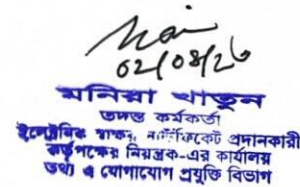 ০২/০৪/২৬
মনিরা খাতুন
তদন্ত কর্মকর্তা
ইলেক্ট্রনিক স্বাক্ষর সার্টিফিকেট প্রদানকারী
কর্তৃপক্ষের নিয়ন্ত্রক-এর কার্যালয়
তথ্য ও যোগাযোগ প্রযুক্তি বিভাগ